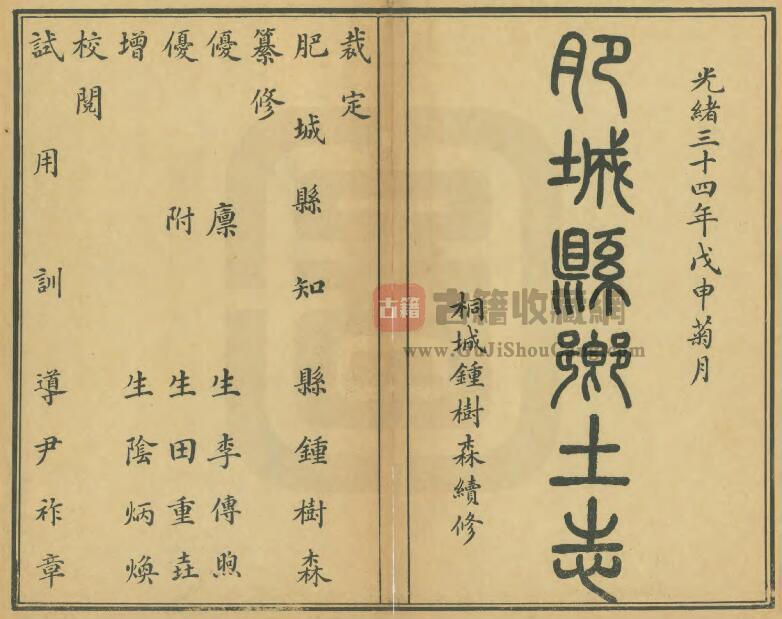 光緒三十四年戊申菊月
肥城縣鄉土志
桐城鍾樹森續修
裁定
肥城縣知縣鍾樹森
纂修
優廩生李傳煦
優附生田重垚
增生陰炳煥
校閱
試用訓導尹祚章
古籍
古籍收藏網
www.GuJiShouCang.com